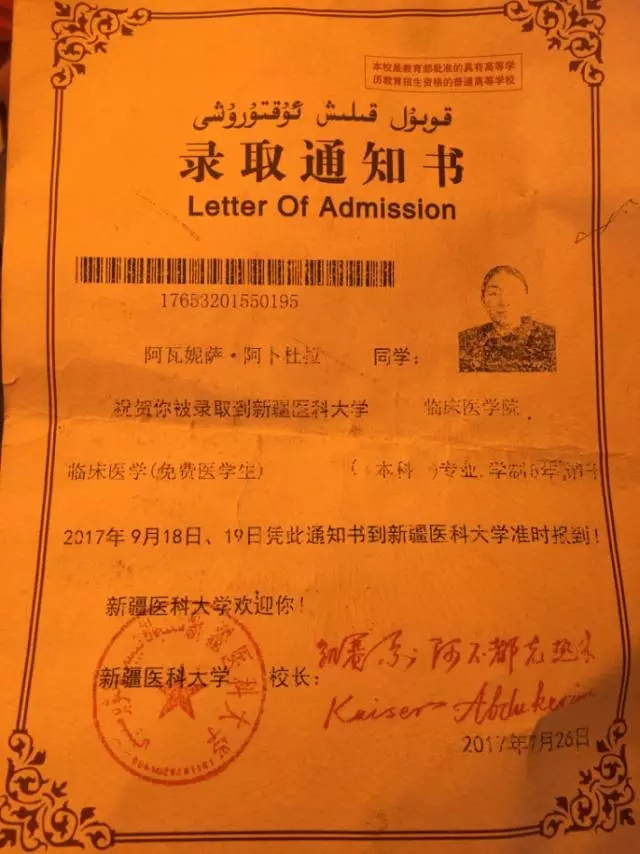 本校是教育部批准的具有高等学
历教育招生资格的普通高等学校
قوبۇل قىلىش ئۇقتۇرۇشى
录取通知书
Letter Of Admission
17653201550195
阿瓦妮萨·阿卜杜拉 同学:
祝贺你被录取到新疆医科大学 临床医学院
临床医学(免费医学生) (本科)专业,学制5年
2017年9月18日、19日凭此通知书到新疆医科大学准时报到!
新疆医科大学欢迎你!
新疆医科大学 校长:
Kaiser Abdukerim
2017年7月26日
新疆医科大学